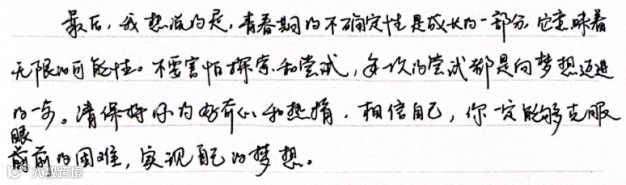 最后，我想说的是，青春期的不确定性是成长的一部分，它意味着
无限的可能性。不要害怕探索和尝试，每次的尝试都是向梦想迈进
的一步。请保持你的好奇心和热情，相信自己，你一定能够克服
眼前的困难，实现自己的梦想。